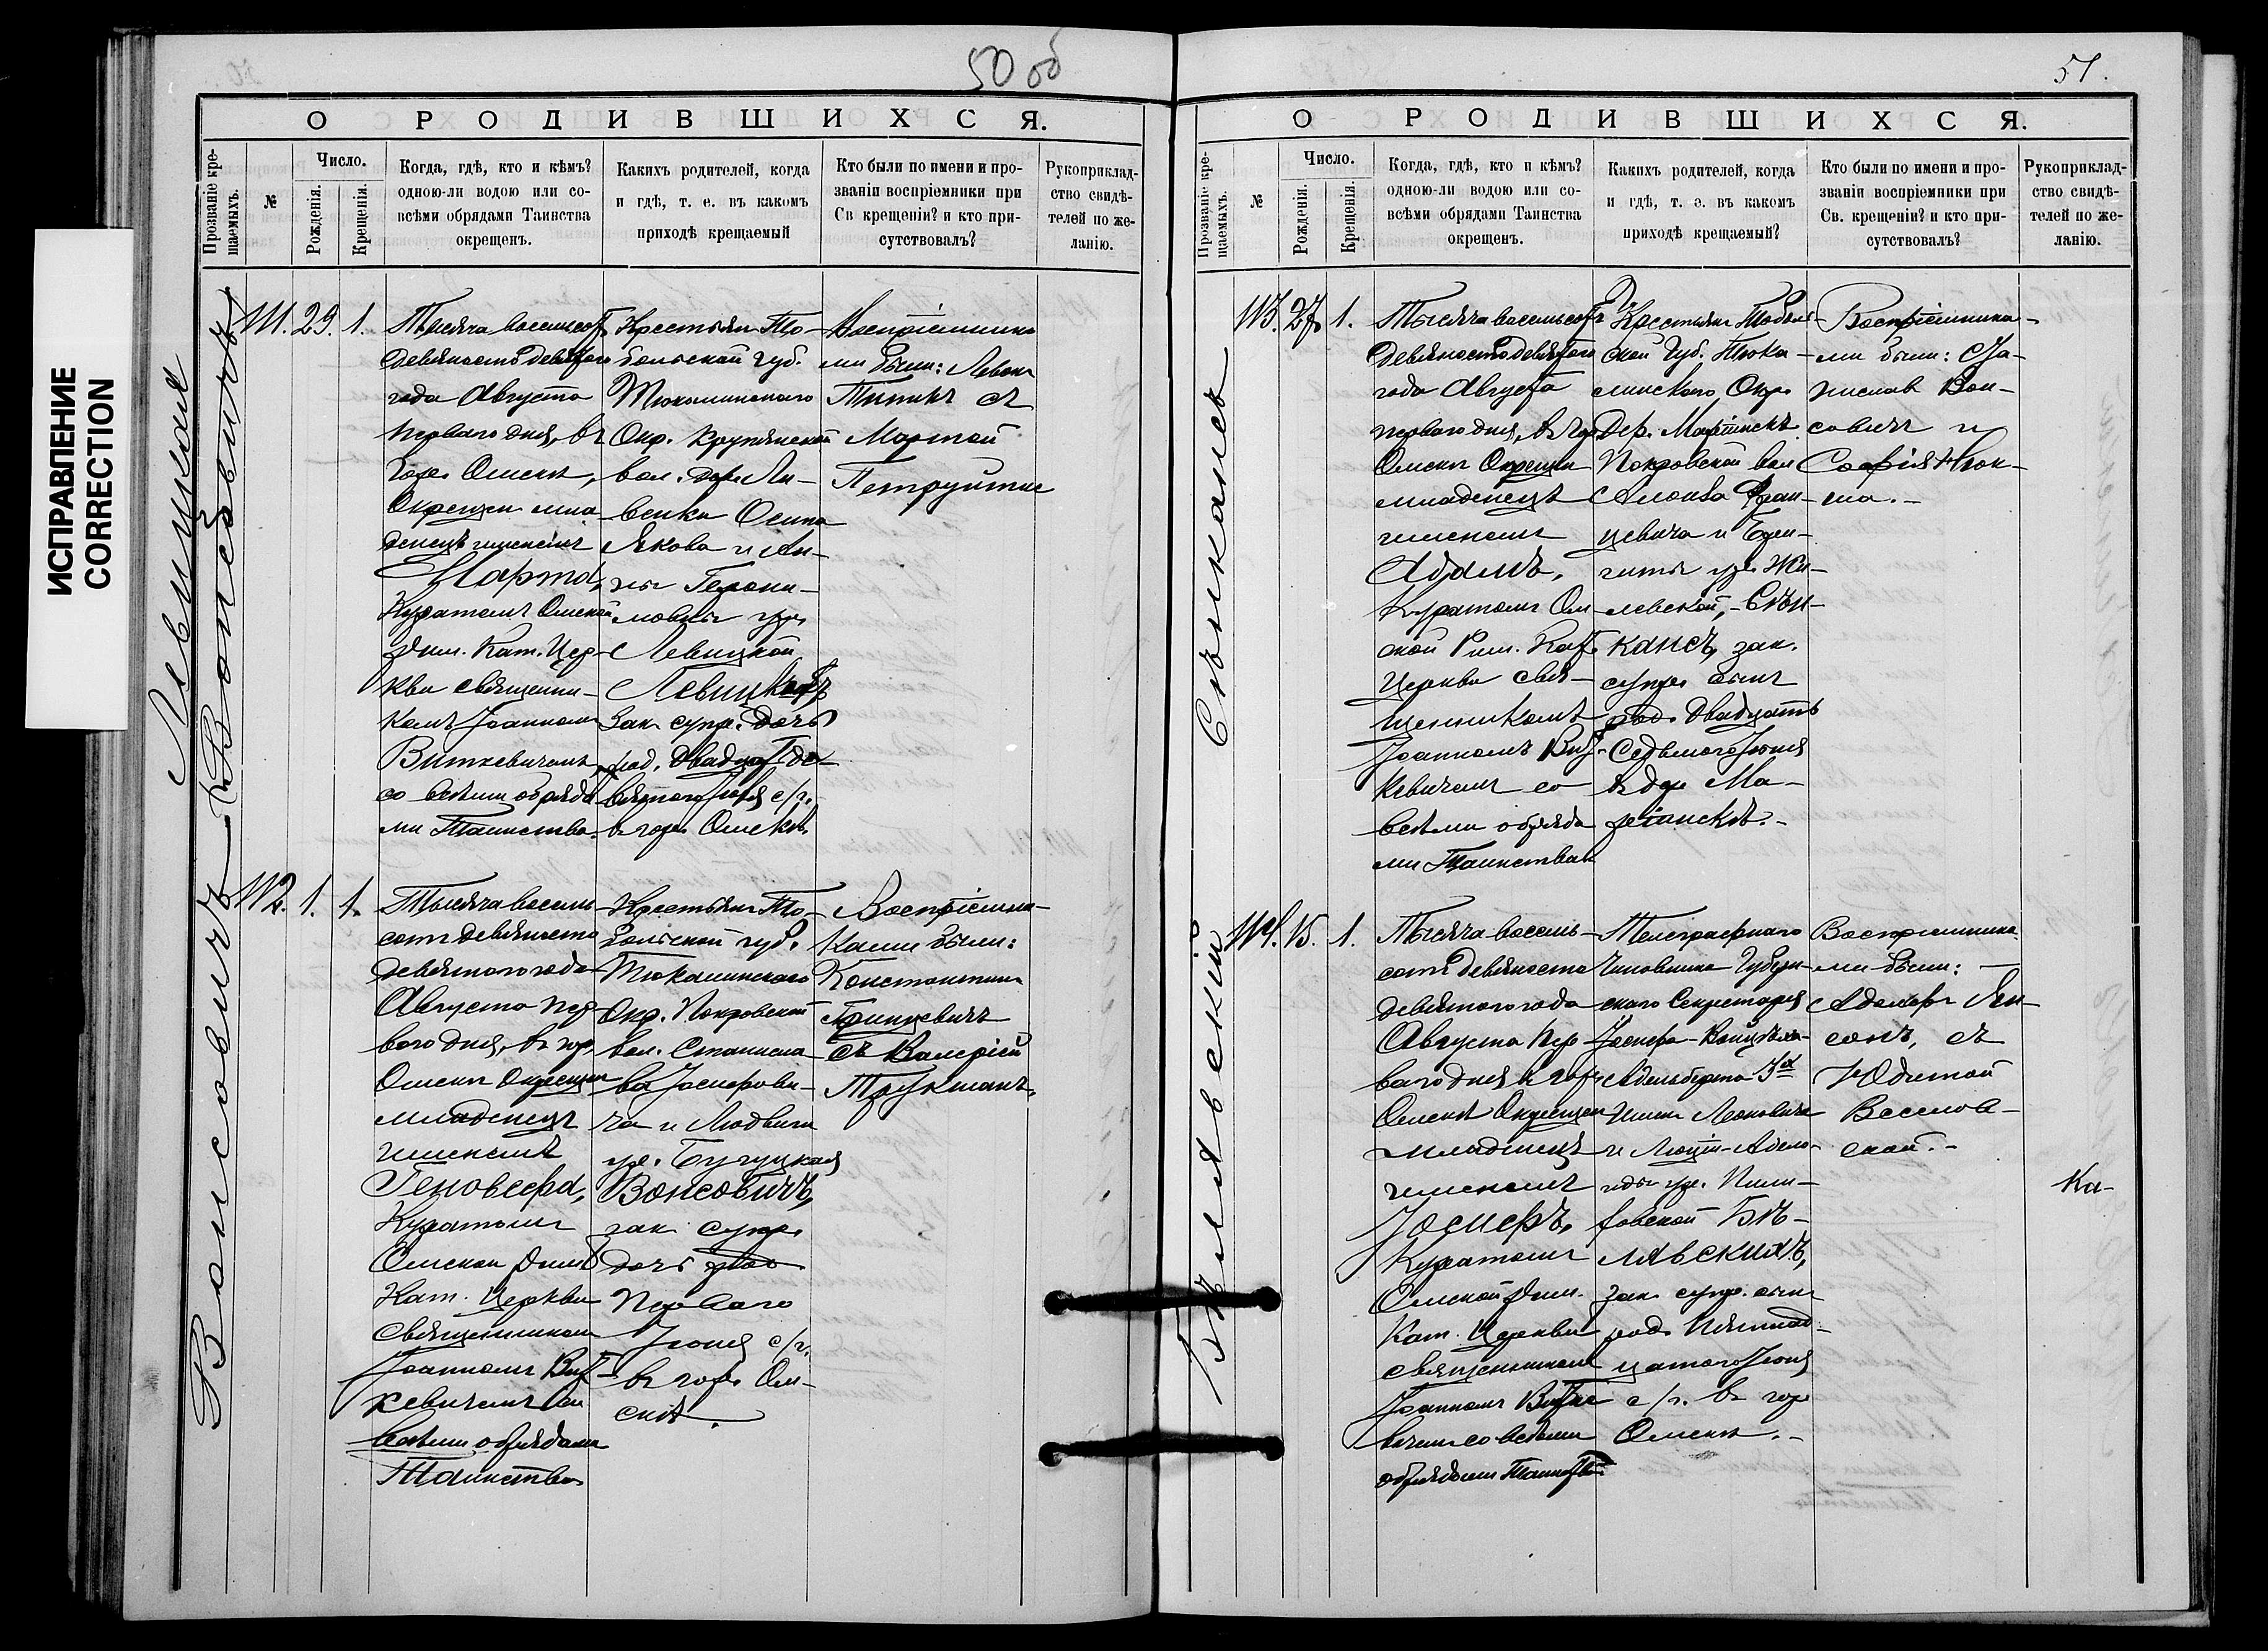 50 об
51.
ИСПРАВЛЕНИЕ
CORRECTION
О РОДИВШИХСЯ.
Прозваніе кре-
щаемыхъ.
№
Число.
Рожденія.
Крещенія.
Когда, гдѣ, кто и кѣмъ?
одною-ли водою или со-
всѣми обрядами Таинства
окрещенъ.
Какихъ родителей, когда
и гдѣ, т. е. въ какомъ
приходѣ крещаемый
Кто были по имени и про-
званіи воспріемники при
Св крещеніи? и кто при-
сутствовалъ?
Рукоприклад-
ство свидѣ-
телей по же-
ланію.
Левицкая
111. 29. 1.
Тысяча восемьсот
девяносто девятого
года Августа
перваго дня, въ
гор. Омскѣ,
Окрещен мла
денецъ именемъ
Марта,
Куратомъ Омской
Рим. Кат. Цер-
кви священни-
комъ Іоанномъ
Виткевичемъ,
со всѣми обряда
ми Таинства.
Крестьян То-
больской губ.
Тюкалинскаго
Окр. Крупянской
вол. дер. Ли-
венки Осипа
Якова и Ан-
ны
мовны ур.
Левицкой
Зак. супр. дочь
род. двадцат де-
вятого Іюля с/г.
въ гор. Омскѣ.
Воспріемника
ми были: Левон
съ
Мартой
Вонсовичъ
112. 1. 1.
Тысяча восемь
сотъ девяносто
девятого года
Августа пер
вого дня, въ гор.
Омскѣ Окрещен
младенецъ
именемъ
Геновефа,
Куратомъ
Омской Рим
Кат. Церкви
священником
Іоанномъ Вит
кевичемъ со
всѣми обрядами
Таинства
Крестьян То-
больской губ.
Тюкалинскаго
Окр. Покровской
вол. Станисла
ва Іосифови-
ча и Людвиги
ур.
Вонсовичъ,
зак. супр.
дочь род
Перваго
Іюня с/г.
въ гор. Ом-
скѣ.
Воспріемни-
ками были:
Константин
Гринцевичъ
съ Валеріей
О РОДИВШИХСЯ.
Прозваніе кре-
щаемыхъ.
№
Число.
Рожденія.
Крещенія.
Когда, гдѣ, кто и кѣмъ?
одною-ли водою или со-
всѣми обрядами Таинства
окрещенъ.
Какихъ родителей, когда
и гдѣ, т. е. въ какомъ
приходѣ крещаемый?
Кто были по имени и про-
званіи воспріемники при
Св. крещеніи? и кто при-
сутствовалъ?
Рукоприклад-
ство свидѣ-
телей по же-
ланію.
113. 27. 1.
Тысяча восемьсотъ
девяносто девятого
года Августа
перваго дня, въ гор
Омскѣ Окрещен
младенецъ
именемъ
Адамъ,
Куратомъ Ом-
ской Рим. Кат.
Церкви свя-
щенникомъ
Іоанномъ Вит-
кевичемъ со
всѣми обряда
ми Таинства
Крестьян Тоболь-
ской Губ. Тюка-
линскаго Окр.
Дер.
Покровской вол
Фран-
цевича и
ур. Жи-
левской,
кансъ, зак.
супр. сынъ
род. двадцать
седьмого Іюня
въ дер. Ма-
Воспріемника-
ми были: Ста-
нислав Вон-
совичъ и
Софія
Бѣлявскій
114. 15. 1.
Тысяча восемь-
сотъ девяносто
девятого года
Августа пер
ваго дня въ гор
Омскѣ Окрещен
младенецъ
именемъ
Іосифъ,
Куратомъ
Омской Рим.
Кат. Церкви
священником
Іоанномъ Витке
вичем со всѣми
обрядами Таинства
Телеграфнаго
Чиновника Губерн
скаго Секретаря
Іосифа-
Адельберта 3хъ
имен Леоновича
и
ур.
Бѣ-
лявскихъ,
зак. супр. сынъ
род. Пятнад-
цатого Іюня
с/г. въ гор
Омскѣ.-
Воспріемника
ми были:
Адольфъ
съ
Юдитой
Ка-